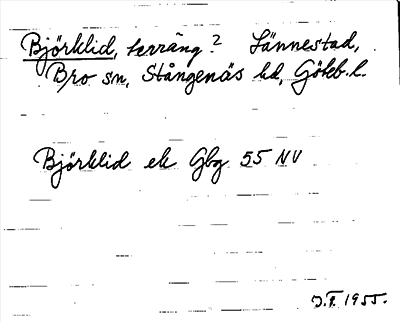 Björklid, terräng? Lännestad,
Bro sn, Stångenäs hd, Göteb. l.
Björklid ek Gbg 55 NV
1955.